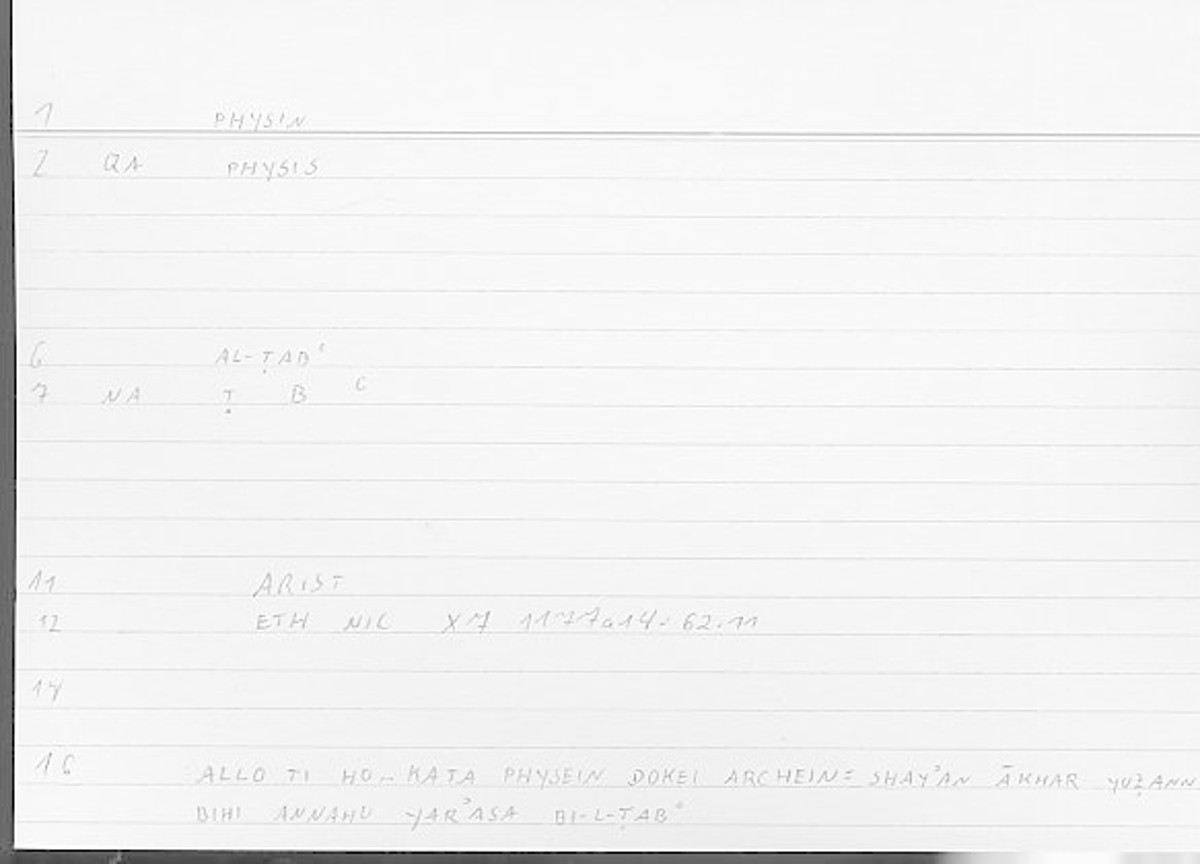 1 PHYSIN
2 QA PHYSIS
6 AL-ṬABʿ
7 NA Ṭ B C
11 ARIST
12 ETH NIC X7 1177a14. 62.11
14
16 ALLO TI HO.. KATA PHYSEIN DOKEI ARCHEIN= SHAYʾAN ĀKHAR YUẒANN
BIHI ANNAHU YARʾASA BI-L-ṬABʿ